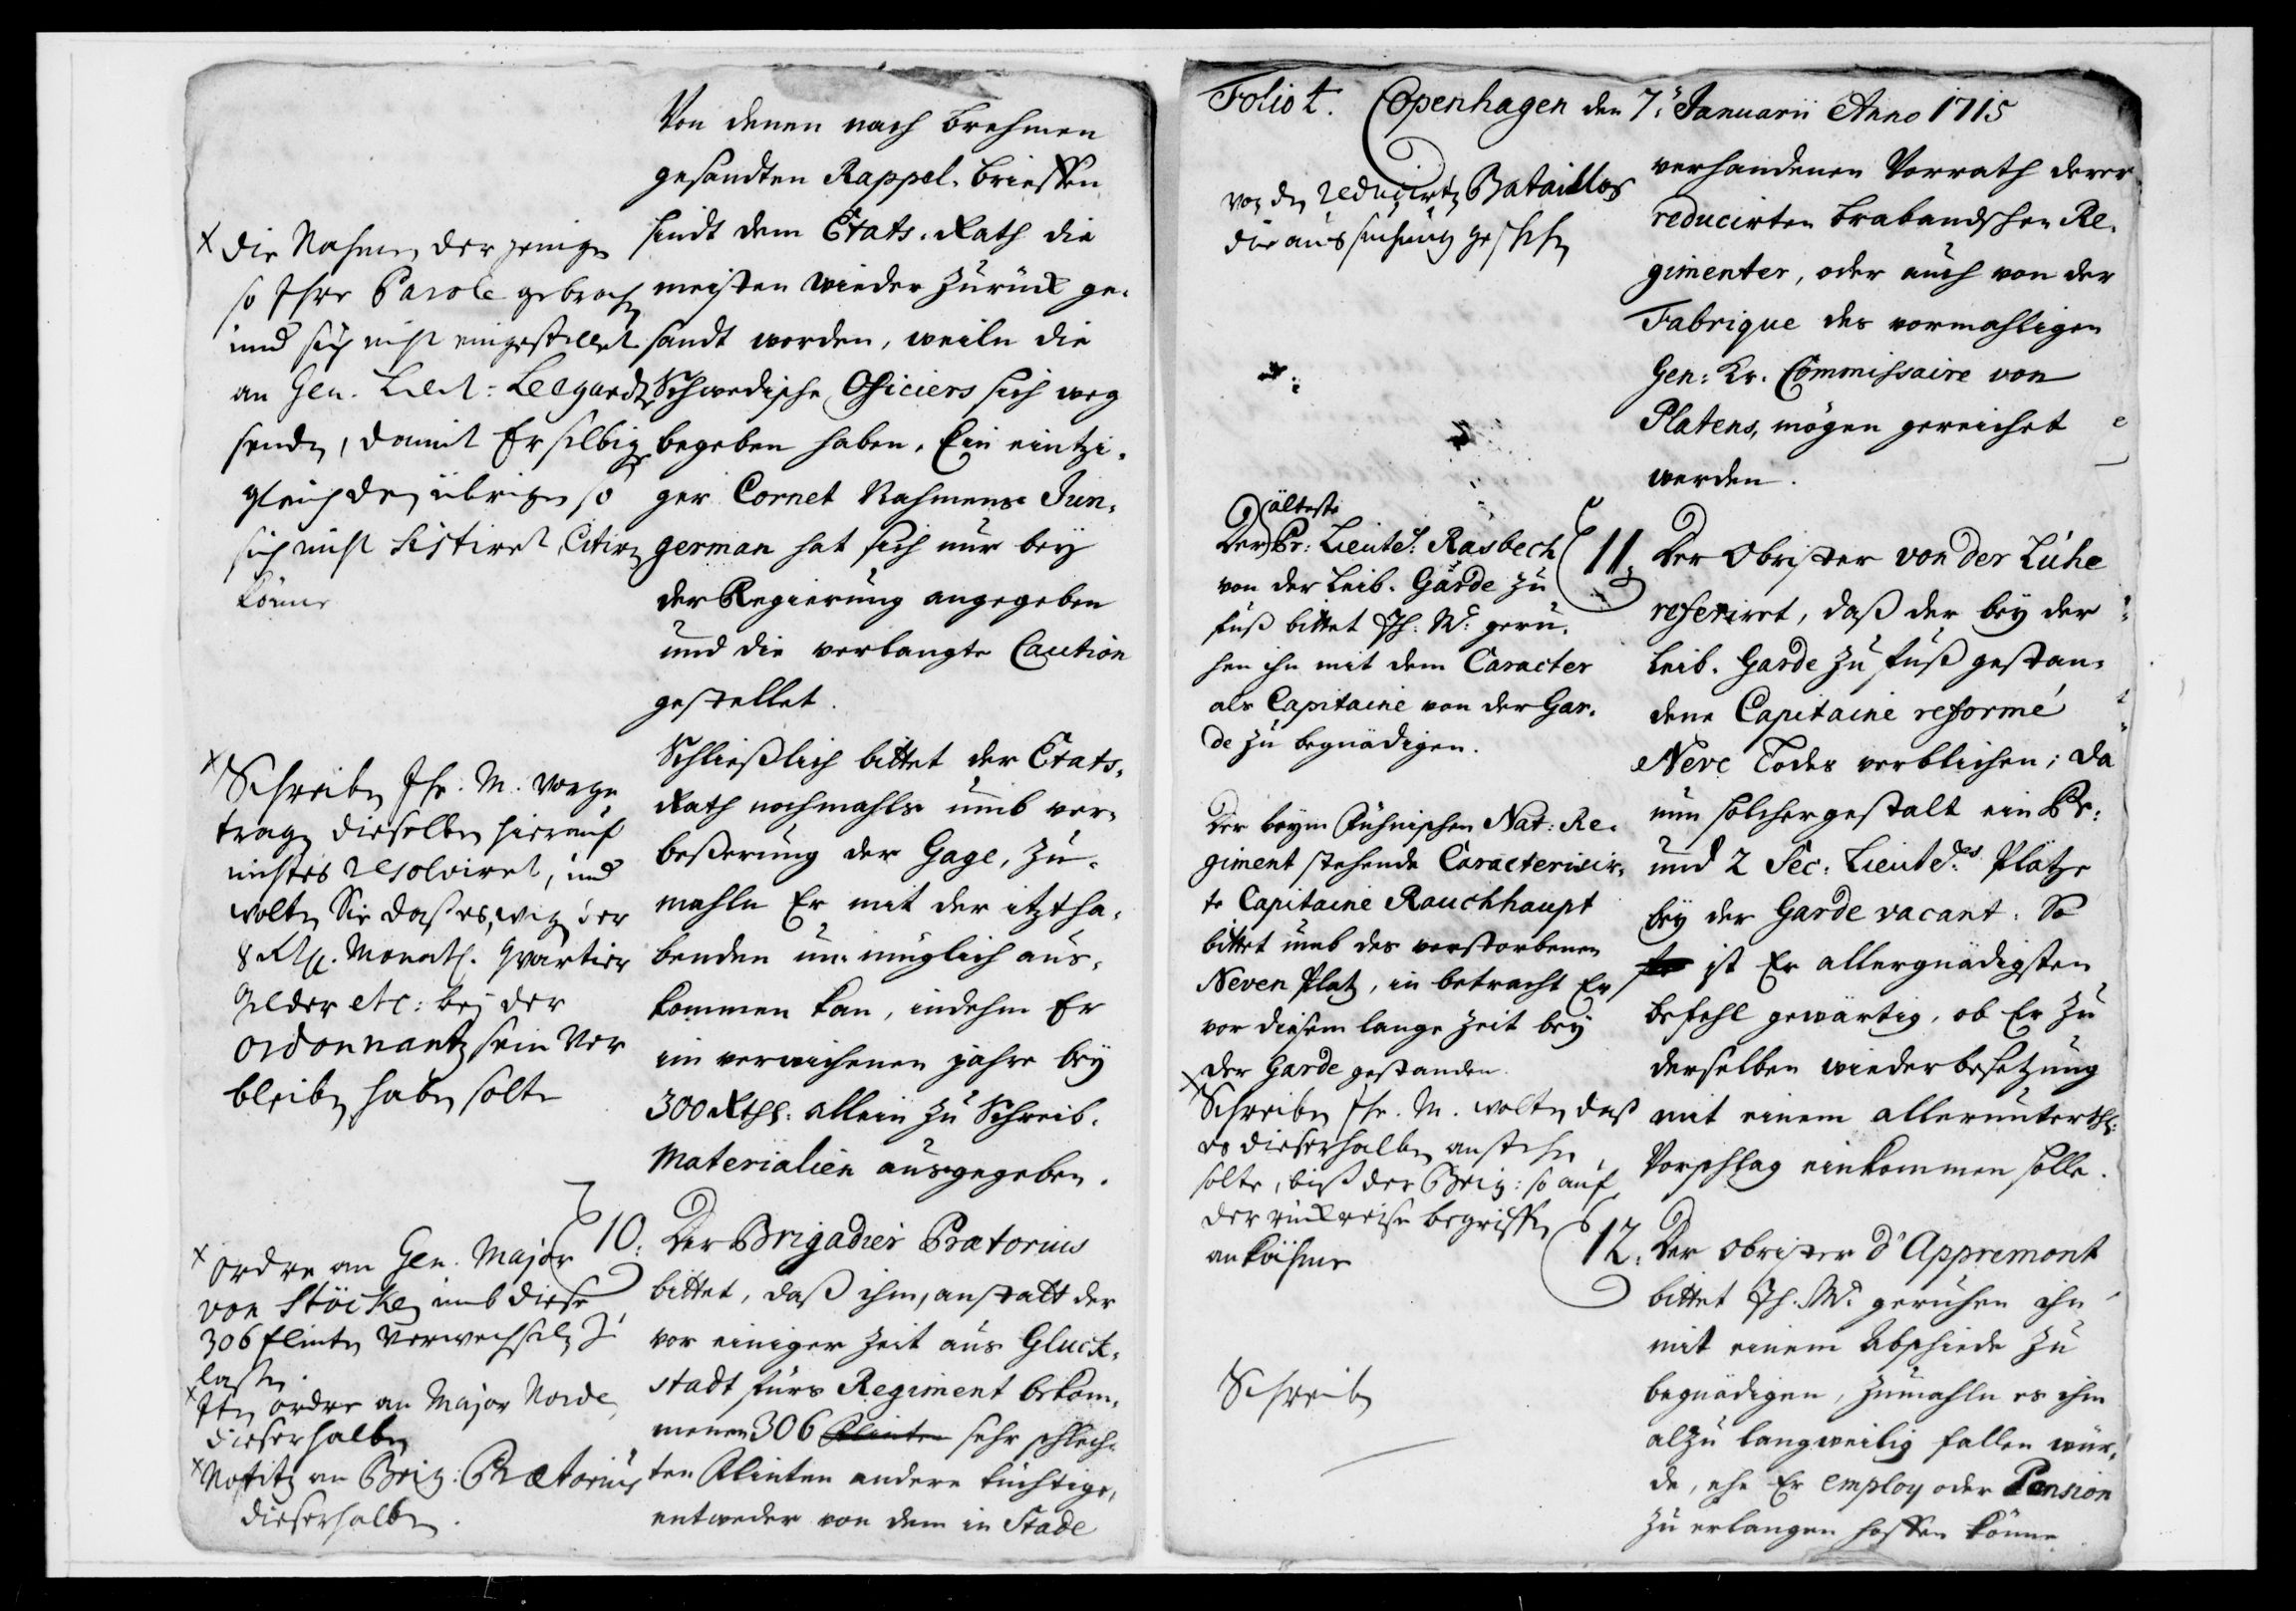 Von denen nach Brehmen
gesandten Rappel-Brieffen
sindt dem Etats-Rath die
meisten wieder zurück ge-
sandt worden, weiln die
Schwedische Officiers sich weg
begeben haben. Ein eintzi-
ger Cornet Nahmens Jun-
german hat sich nur bey
der Regierung angegeben
und die verlangte Caution
gestellet.
Schließlich bittet der Etats-
Rath nochmahls umb ver-
beßerung der Gage, zu-
mahln Er mit der itztha-
benden un-müglich aus-
kommen kan, indehm Er
im verwichenen jahre bey
300 Rthl: allein zu Schreib-
Materialien ausgegeben.
10: Der Brigadier Prætorius
bittet, daß ihm, anstatt der
vor einiger Zeit aus Gluck-
stadt fürs Regiment bekom-
menen 306 Flinten sehr schlech-
ten Flinten andere tüchtige,
entweder von dem in Stade
x die Nahmen derjenigen
so Ihre Parole gebrochen
und sich nicht eingestellet
an Gen. Lieut: Leegardt
senden, damit Er selbige
gleich den übrigen so
sich nicht sistiret, Citiren
könne
x Schreiben Ihr. M. vorge
tragen dieselben hierauf
nichtes resolviret, und
wolten Sie daß es, wegen der
8 Rthl. Monatl. Quartier
Gelder etc: bej der
Ordonnantz sein Ver
bleiben haben solte
x Ordre an Gen. Major
von Stöcken umb diese
306 flinten verwechseln zu
laßen.
x Iten ordre an Major Norde
dieserhalben
x Notitz an Brig: Prætorius
dieserhalben.
Folio 4. Copenhagen den 7: Januarii Anno 1715
verhandenen Vorrath derer
reducirten Brabandschen Re-
gimenter, oder auch von der
Fabrique des vormahligen
Gen: Kr. Commissaire von
Platens, mögen gereichet
werden.
11: Der Obrister von der Lühe
referiret, daß der bey der
Leib-Garde zu Fuß gestan-
dene Capitaine reformé
Neve Todes verblichen; da
nun solchergestalt ein Pr:
und 2 Sec: Lieut: Plätze
bey der Garde vacant: So
ist Er allergnädigsten
befehl gewärtig, ob Er zu
derselben wiederbesetzung
mit einem allerunterth:
Vorschlag einkommen solle.
12. Der Obrister d'Appremont
bittet Ih. M: geruhen ihn
mit einem Abschiede zu
begnädigen, zumahln es ihm
alzu langweilig fallen wür-
de, ehe Er employ oder Pension
zu erlangen hoffen könne.
von den reducirten Bataillos
die aussuchung geschehen
älteste
Der Pr: Lieut: Rasbech
von der Leib-Garde zu
fuß bittet Ih: M: geru-
hen ihn mit dem Caracter
als Capitaine von der Gar-
de zu begnädigen.
Der beym Fühnischen Nat: Re-
giment stehende Caracterisir-
te Capitaine Rauchhaupt
bittet umb des verstorbenen
Neven Platz, in betracht Er
vor diesem lange Zeit bey
der Garde gestanden.
x Schreiben Ihr. M. wolten daß
es dieserhalben anstehen
solte, biß der Brig: so auf
der rückreise begriffen
ankähme
Schreiben